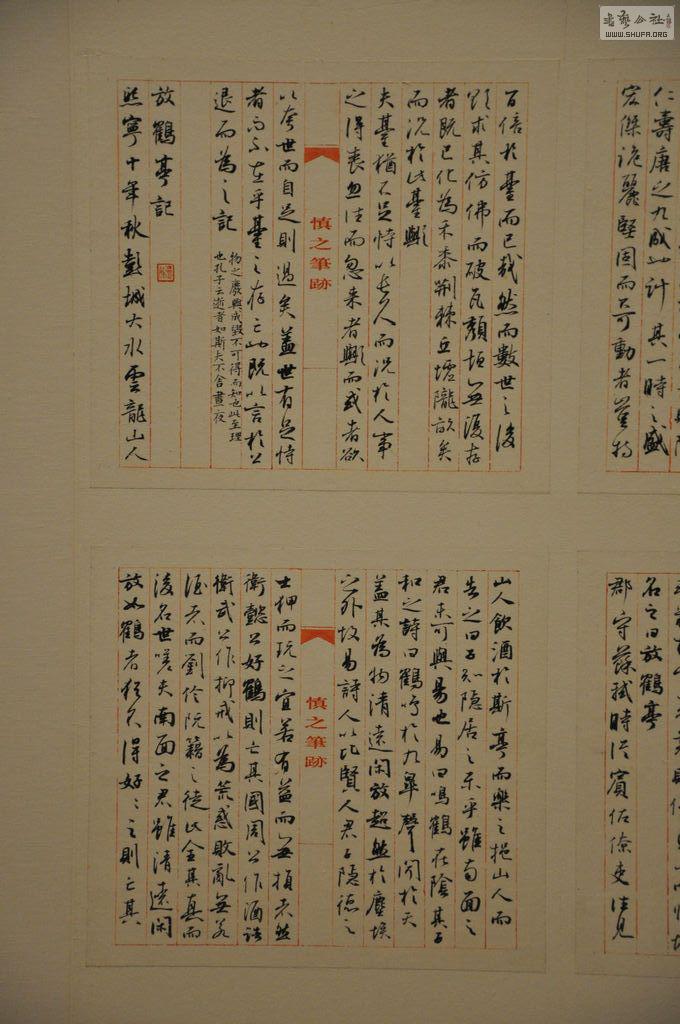 書藝公社
WWW.SHUFA.ORG
仁壽唐之九成此計其一時之盛
宏傑詭麗堅固而不可動者豈特
百倍於臺而已哉然而數世之後
欲求其仿佛而破瓦頹垣無復存
者既已化為禾黍荊棘丘墟隴畝矣
而況於此臺歟
夫臺猶不足恃以長久而況於人事
之得喪忽往而忽来者歟而或者欲
慎之筆跡
以夸世而自足則過矣盖世有足恃
者而不在乎臺之存亡也既以言於公
退而為之記
物之廢興成毀不可得而知也此至理
也孔子云逝者如斯夫不舍晝夜
放鶴亭記
熙寧十年秋彭城大水雲龍山人
名之曰放鶴亭
郡守蘇軾時從賓佐僚吏往見
山人飲酒於斯亭而樂之挹山人而
告之曰子知隱居之樂乎雖南面之
君未可與易也易曰鳴鶴在陰其子
和之詩曰鶴鳴於九皋聲聞於天
盖其為物清遠閑放超然於塵埃
之外故易詩人以比賢人君子隱德之
慎之筆跡
士狎而玩之宜若有益而無損者然
衛懿公好鶴則亡其國周公作酒誥
衛武公作抑戒以為荒惑敗亂無若
酒者而劉伶阮籍之徒此全其真而
後名世嗟夫南面之君雖清遠閑
放如鶴者猶不得好〻之則亡其